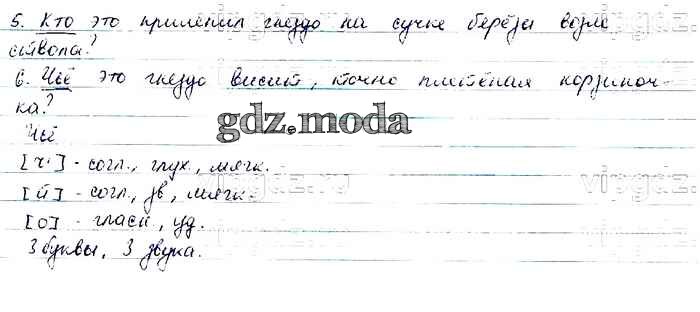 5. Кто это прилепил гнездо на сучке берёзы возле
ствола?
6. Чьё это гнездо висит, точно плетёная корзиноч-
ка?
gdz.moda
Чьё
[ч'] - согл., глух., мягк.
[й'] - согл., зв, мягк.
[о] - гласн, уд.
3 буквы, 3 звука.